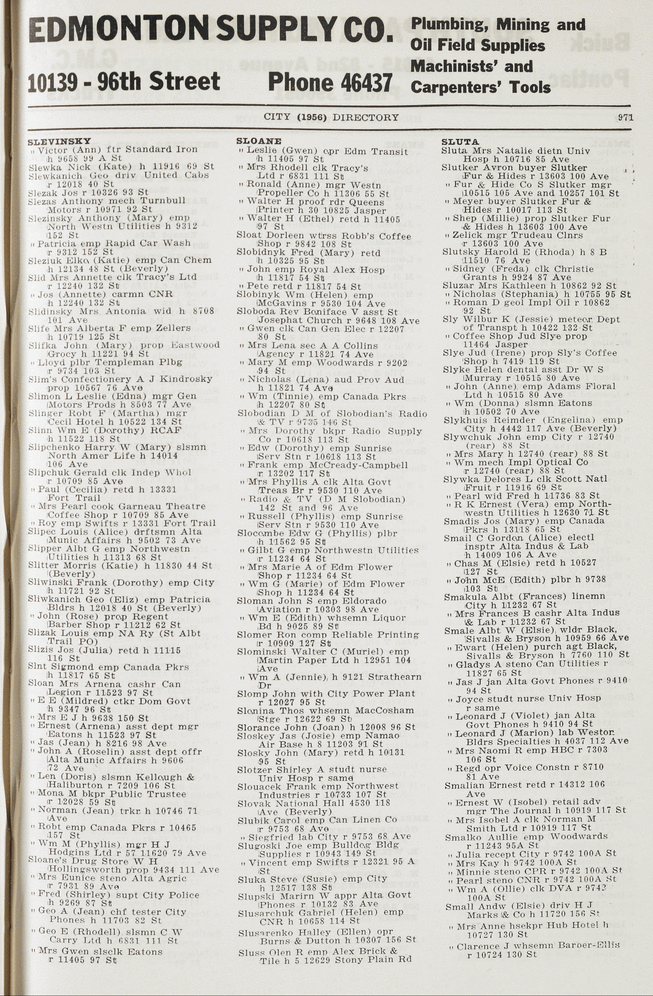 EDMONTON SUPPLY CO.
10139 - 96th Street Phone 46437
Plumbing, Mining and
Oil Field Supplies
Machinists' and
Carpenters' Tools
CITY (1956) DIRECTORY
971
SLEVINSKY
" Victor (Ann) ftr Standard Iron
h 9658 99 A St
Slewka Nick (Kate) h 11916 69 St
Slewkanich Geo driv United Cabs
r 12018 40 St
Slezak Jos r 10326 93 St
Slezas Anthony mech Turnbull
Motors r 10971 92 St
Slezinsky Anthony (Mary) emp
North Westn Utilities h 9312
152 St
" Patricia emp Rapid Car Wash
r 9312 152 St
Sleziuk Elko (Katie) emp Can Chem
h 12134 48 St (Beverly)
Slid Mrs Annette clk Tracy's Ltd
r 12240 132 St
" Jos (Annette) carmn CNR
h 12240 132 St
Slidinsky Mrs Antonia wid h 8708
101 Ave
Slife Mrs Alberta F emp Zellers
h 10719 125 St
Slifka John (Mary) prop Eastwood
Grocy h 11221 94 St
" Lloyd plbr Templeman Plbg
r 9734 103 St
Slim's Confectionery A J Kindrosky
prop 10567 76 Ave
Slimon L Leslie (Edna) mgr Gen
Motors Prods h 8503 77 Ave
Slinger Robt F (Martha) mgr
Cecil Hotel h 10522 134 St
Slinn Wm E (Dorothy) RCAF
h 11522 118 St
Slipchenko Harry W (Mary) slsmn
North Amer Life h 14014
106 Ave
Slipchuk Gerald clk Indep Whol
r 10709 85 Ave
" Paul (Cecilia) retd h 13331
Fort Trail
" Mrs Pearl cook Garneau Theatre
Coffee Shop r 10709 85 Ave
" Roy emp Swifts r 13331 Fort Trail
Slipec Louis (Alice) drftsmn Alta
Munic Affairs h 9502 73 Ave
Slipper Albt G emp Northwestn
Utilities h 11313 68 St
Slitter Morris (Katie) h 11830 44 St
(Beverly)
Sliwinski Frank (Dorothy) emp City
h 11721 92 St
Sliwkanich Geo (Eliz) emp Patricia
Bldrs h 12018 40 St (Beverly)
" John (Rose) prop Regent
Barber Shop r 11212 62 St
Slizak Louis emp NA Ry (St Albt
Trail PO)
Slizis Jos (Julia) retd h 11115
116 St
Slnt Sigmond emp Canada Pkrs
h 11817 65 St
Sloan Mrs Arnena cashr Can
Legion r 11523 97 St
" E E (Mildred) ctkr Dom Govt
h 9347 96 St
" Mrs E J h 9638 150 St
" Ernest (Arnena) asst dept mgr
Eatons h 11523 97 St
" Jas (Jean) h 8216 98 Ave
" John A (Roselin) asst dept offr
Alta Munic Affairs h 9606
72 Ave
" Len (Doris) slsmn Kellough &
Haliburton r 7209 106 St
" Mona M bkpr Public Trustee
r 12028 59 St
" Norman (Jean) trkr h 10746 71
Ave
" Robt emp Canada Pkrs r 10465
157 St
" Wm M (Phyllis) mgr H J
Hodgins Ltd r 57 11620 79 Ave
Sloane's Drug Store W H
Hollingsworth prop 9434 111 Ave
" Mrs Eunice steno Alta Agric
r 7931 89 Ave
" Fred (Shirley) supt City Police
h 9269 87 St
" Geo A (Jean) chf tester City
Phones h 11703 82 St
" Geo E (Rhodell) slsmn C W
Carry Ltd h 6831 111 St
" Mrs Gwen slsclk Eatons
r 11405 97 St
SLOANE
" Leslie (Gwen) opr Edm Transit
h 11405 97 St
" Mrs Rhodell clk Tracy's
Ltd r 6831 111 St
" Ronald (Anne) mgr Westn
Propeller Co h 11306 55 St
" Walter H proof rdr Queens
Printer h 30 10825 Jasper
" Walter H (Ethel) retd h 11405
97 St
Sloat Dorleen wtrss Robb's Coffee
Shop r 9842 108 St
Slobidnyk Fred (Mary) retd
h 10325 95 St
" John emp Royal Alex Hosp
h 11817 54 St
" Pete retd r 11817 54 St
Slobinyk Wm (Helen) emp
McGavins r 9530 104 Ave
Sloboda Rev Boniface V asst St
Josephat Church r 9648 108 Ave
" Gwen clk Can Gen Elec r 12207
80 St
" Mrs Lena sec A A Collins
Agency r 11821 74 Ave
" Mary M emp Woodwards r 9202
94 St
" Nicholas (Lena) aud Prov Aud
h 11821 74 Ave
" Wm (Tinnie) emp Canada Pkrs
h 12207 80 St
Slobodian D M of Slobodian's Radio
& TV r 9735 146 St
" Mrs Dorothy bkpr Radio Supply
Co r 10618 113 St
" Edw (Dorothy) emp Sunrise
Serv Stn r 10618 113 St
" Frank emp McCready-Campbell
r 13202 117 St
" Mrs Phyllis A clk Alta Govt
Treas Br r 9530 110 Ave
" Radio & TV (D M Slobodian)
142 St and 96 Ave
" Russell (Phyllis) emp Sunrise
Serv Stn r 9530 110 Ave
Slocombe Edw G (Phyllis) plbr
h 11562 95 St
" Gilbt G emp Northwestn Utilities
r 11234 64 St
" Mrs Marie A of Edm Flower
Shop r 11234 64 St
" Wm G (Marie) of Edm Flower
Shop h 11234 64 St
Sloman John S emp Eldorado
Aviation r 10303 98 Ave
" Wm E (Edith) whsemn Liquor
Bd h 9025 89 St
Slomer Ron comp Reliable Printing
r 10909 127 St
Slominski Walter C (Muriel) emp
Martin Paper Ltd h 12951 104
Ave
" Wm A (Jennie) h 9121 Strathearn
Dr
Slomp John with City Power Plant
r 12027 95 St
Slonina Thos whsemn MacCosham
Stge r 12622 69 St
Slorance John (Joan) h 12008 96 St
Sloskey Jas (Josie) emp Namao
Air Base h 8 11203 91 St
Slosky John (Mary) retd h 10131
95 St
Slotzer Shirley A studt nurse
Univ Hosp r same
Slouacek Frank emp Northwest
Industries r 10733 107 St
Slovak National Hall 4530 118
Ave (Beverly)
Slubik Carol emp Can Linen Co
r 9753 68 Ave
" Siegfried lab City r 9753 68 Ave
Slugoski Joe emp Bulldog Bldg
Supplies r 10943 149 St
" Vincent emp Swifts r 12321 95 A
St
Sluka Steve (Susie) emp City
h 12517 138 St
Slupski Marirn W appr Alta Govt
Phones r 10132 83 Ave
Slusarchuk Gabriel (Helen) emp
CNR h 10658 114 St
Slusarenko Halley (Ellen) opr
Burns & Dutton h 10307 156 St
Sluss Olen R emp Alex Brick &
Tile h 5 12629 Stony Plain Rd
SLUTA
Sluta Mrs Natalie dietn Univ
Hosp h 10716 85 Ave
Slutker Avron buyer Slutker
Fur & Hides r 13603 100 Ave
" Fur & Hide Co S Slutker mgr
10515 105 Ave and 10257 101 St
" Meyer buyer Slutker Fur &
Hides r 10017 113 St
" Shep (Millie) prop Slutker Fur
& Hides h 13603 100 Ave
" Zelick mgr Trudeau Clnrs
r 13603 100 Ave
Slutsky Harold E (Rhoda) h 8 B
11510 76 Ave
" Sidney (Freda) clk Christie
Grants h 9924 87 Ave
Sluzar Mrs Kathleen h 10862 92 St
" Nicholas (Stephania) h 10755 95 St
" Roman D geol Impl Oil r 10862
92 St
Sly Wilbur K (Jessie) meteor Dept
of Transpt h 10422 132 St
" Coffee Shop Jud Slye prop
11464 Jasper
Slye Jud (Irene) prop Sly's Coffee
Shop h 7419 119 St
Slyke Helen dental asst Dr W S
Murray r 10515 80 Ave
" John (Anne) emp Adams Floral
Ltd h 10515 80 Ave
" Wm (Donna) slsmn Eatons
h 10502 70 Ave
Slykhuis Reimder (Engelina) emp
City h 4442 117 Ave (Beverly)
Slywchuk John emp City r 12740
(rear) 88 St
" Mrs Mary h 12740 (rear) 88 St
" Wm mech Impl Optical Co
r 12740 (rear) 88 St
Slywka Delores L clk Scott Natl
Fruit r 11916 69 St
" Pearl wid Fred h 11736 83 St
" R K Ernest (Vera) emp North-
westn Utilities h 12630 71 St
Smadis Jos (Mary) emp Canada
Pkrs h 13118 65 St
Smail C Gordon (Alice) electl
insptr Alta Indus & Lab
h 14009 106 A Ave
" Chas M (Elsie) retd h 10527
127 St
" John McE (Edith) plbr h 9738
103 St
Smakula Albt (Frances) linemn
City h 11232 67 St
" Mrs Frances B cashr Alta Indus
& Lab r 11232 67 St
Smale Albt W (Elsie) wldr Black,
Sivalls & Bryson h 10959 66 Ave
" Ewart (Helen) purch agt Black,
Sivalls & Bryson h 7760 110 St
" Gladys A steno Can Utilities r
11827 65 St
" Jas J jan Alta Govt Phones r 9410
94 St
" Joyce studt nurse Univ Hosp
r same
" Leonard J (Violet) jan Alta
Govt Phones h 9410 94 St
" Leonard J (Marion) lab Weston
Bldrs Specialties h 4037 112 Ave
" Mrs Naomi R emp HBC r 7303
106 St
" Regd opr Voice Constn r 8710
81 Ave
Smalian Ernest retd r 14312 106
Ave
" Ernest W (Isobel) retail adv
mgr The Journal h 10919 117 St
" Mrs Isobel A clk Norman M
Smith Ltd r 10919 117 St
Smalko Aullie emp Woodwards
r 11243 95A St
" Julia recept City r 9742 100A St
" Mrs Kay h 9742 100A St
" Minnie steno CPR r 9742 100A St
" Pearl steno CNR r 9742 100A St
" Wm A (Ollie) clk DVA r 9742
100A St
Small Andw (Elsie) driv H J
Marks & Co h 11720 156 St
" Mrs Anne hsekpr Hub Hotel h
10727 130 St
" Clarence J whsemn Barber-Ellis
r 10724 130 St